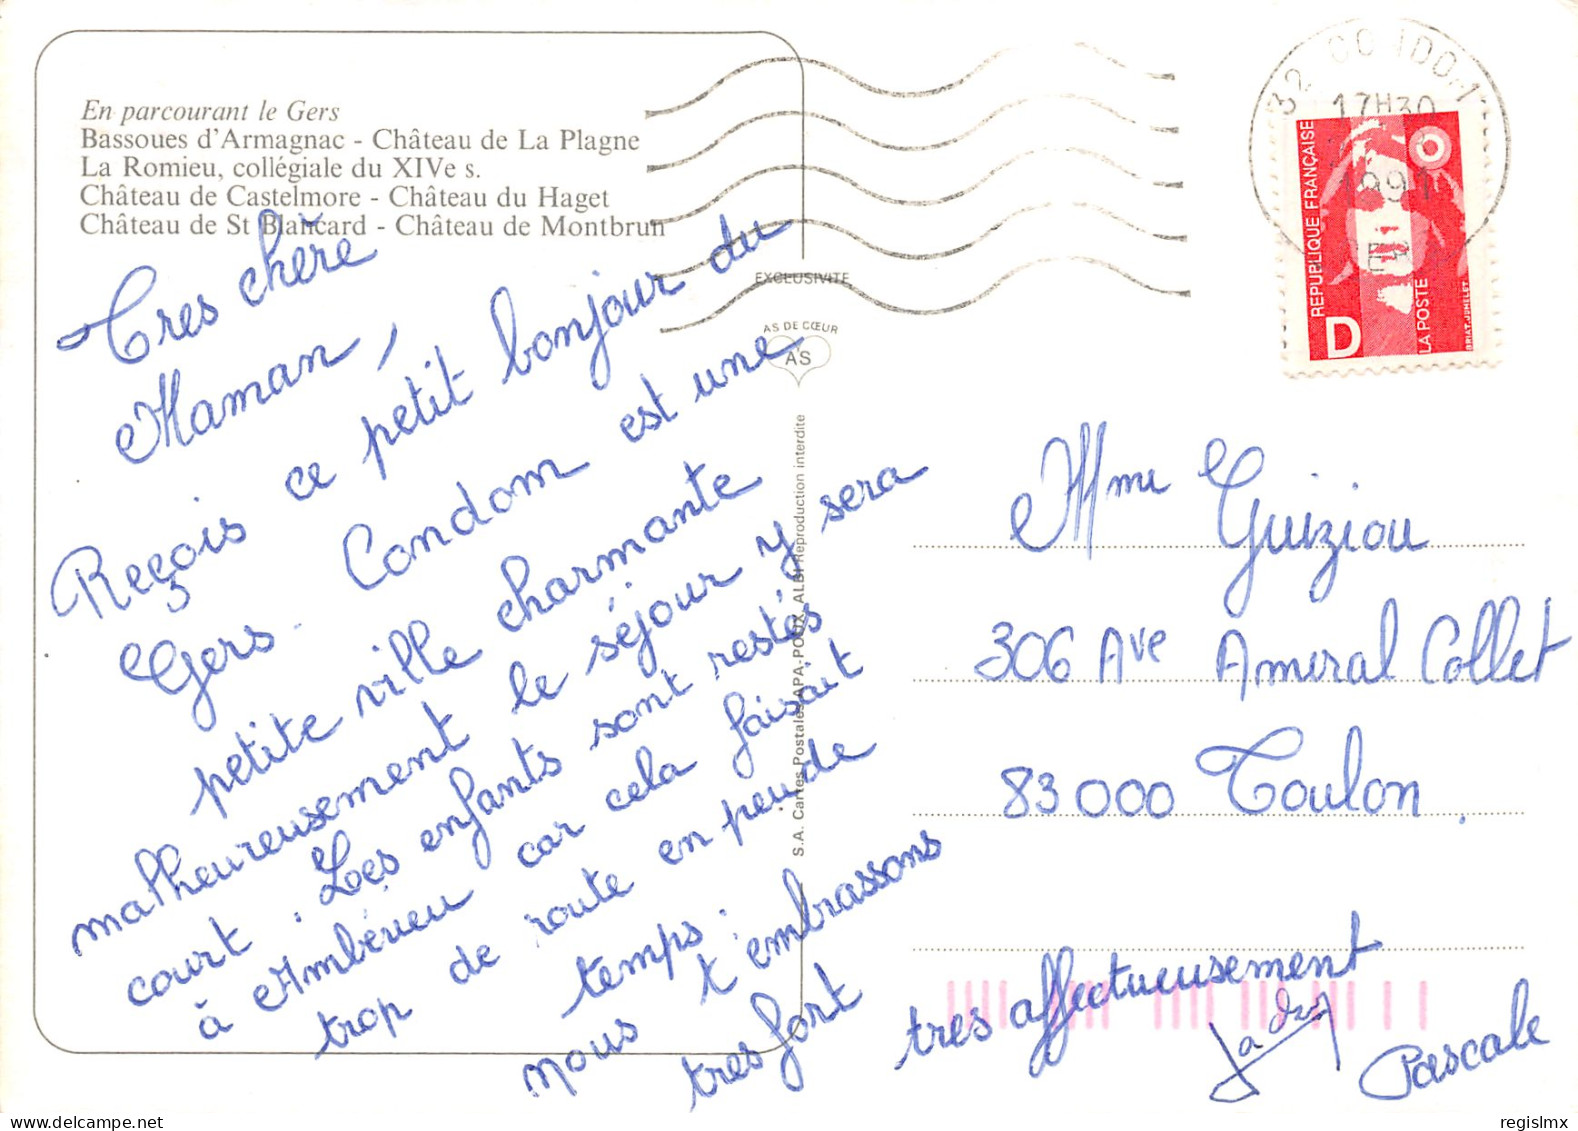 En parcourant le Gers
Bassoues d'Armagnac - Château de La Plagne
La Romieu, collégiale du XIVe s.
Château de Castelmore - Château du Haget
Château de St Blancard - Château de Montbrun
Tres chère
Maman,
Reçois ce petit bonjour du
Gers. Condom est une
petite ville charmante
malheureusement le séjour y sera
court. Les enfants sont restés
à Ambérieu car cela faisait
trop de route en peu de
temps.
nous t'embrassons
tres fort
tres affectueusement
Pascale
EXCLUSIVITE
AS DE CŒUR
A'S
S.A. Cartes Postales APA-POUX, ALBI Reproduction interdite
32 CONDOM
17H30
1991
REPUBLIQUE FRANÇAISE
D
LA POSTE
BRIAT-JUMELET
Mme Guiziou
306 Ave Ameral Collet
83000 Toulon.
regislmx